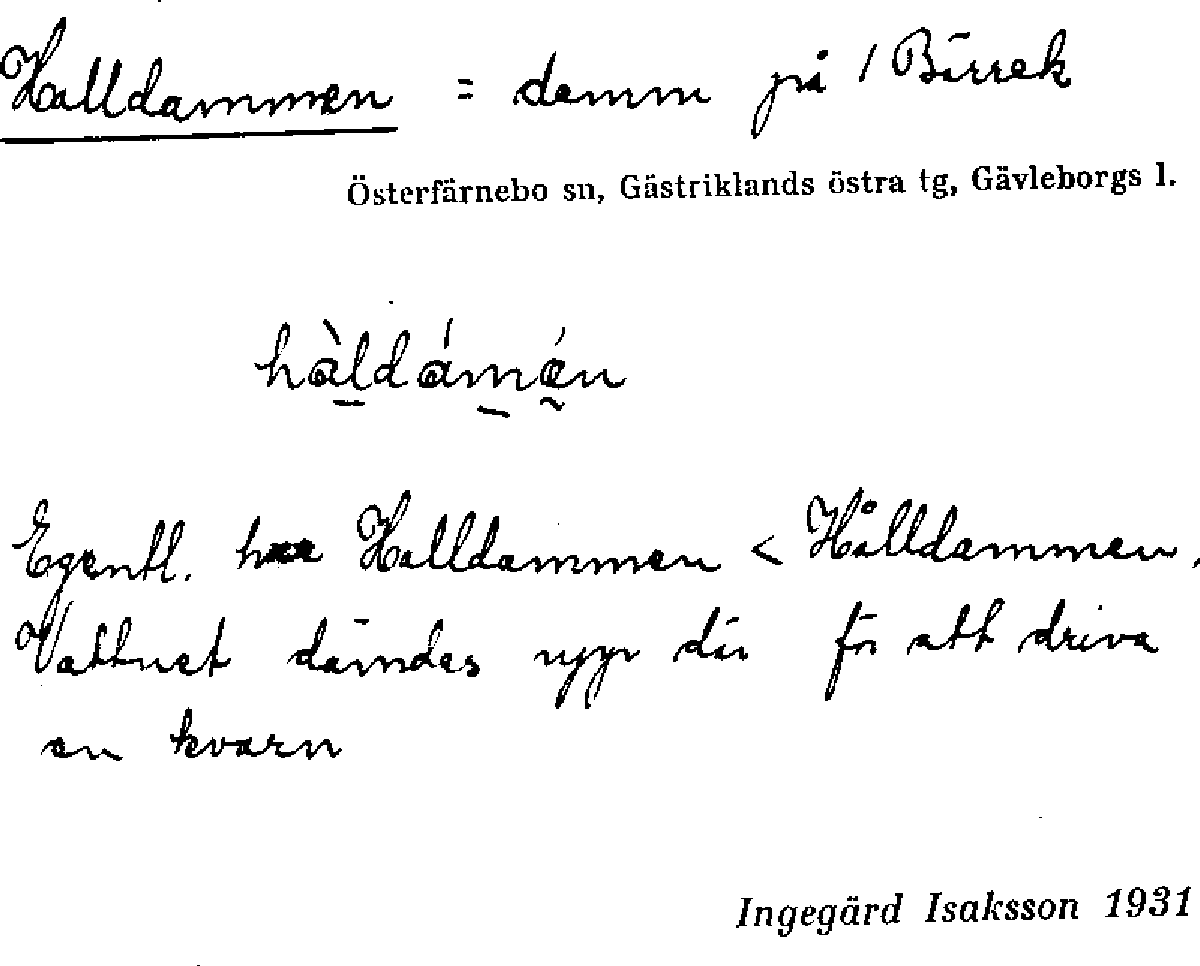 Halldammen = damm på / Bärrek
Österfärnebo sn, Gästriklands östra tg, Gävleborgs l.
hàldámán
Egentl. Halldammen < Hålldammen.
Vattnet dämdes upp där för att driva
en kvarn
Ingegärd Isaksson 1931